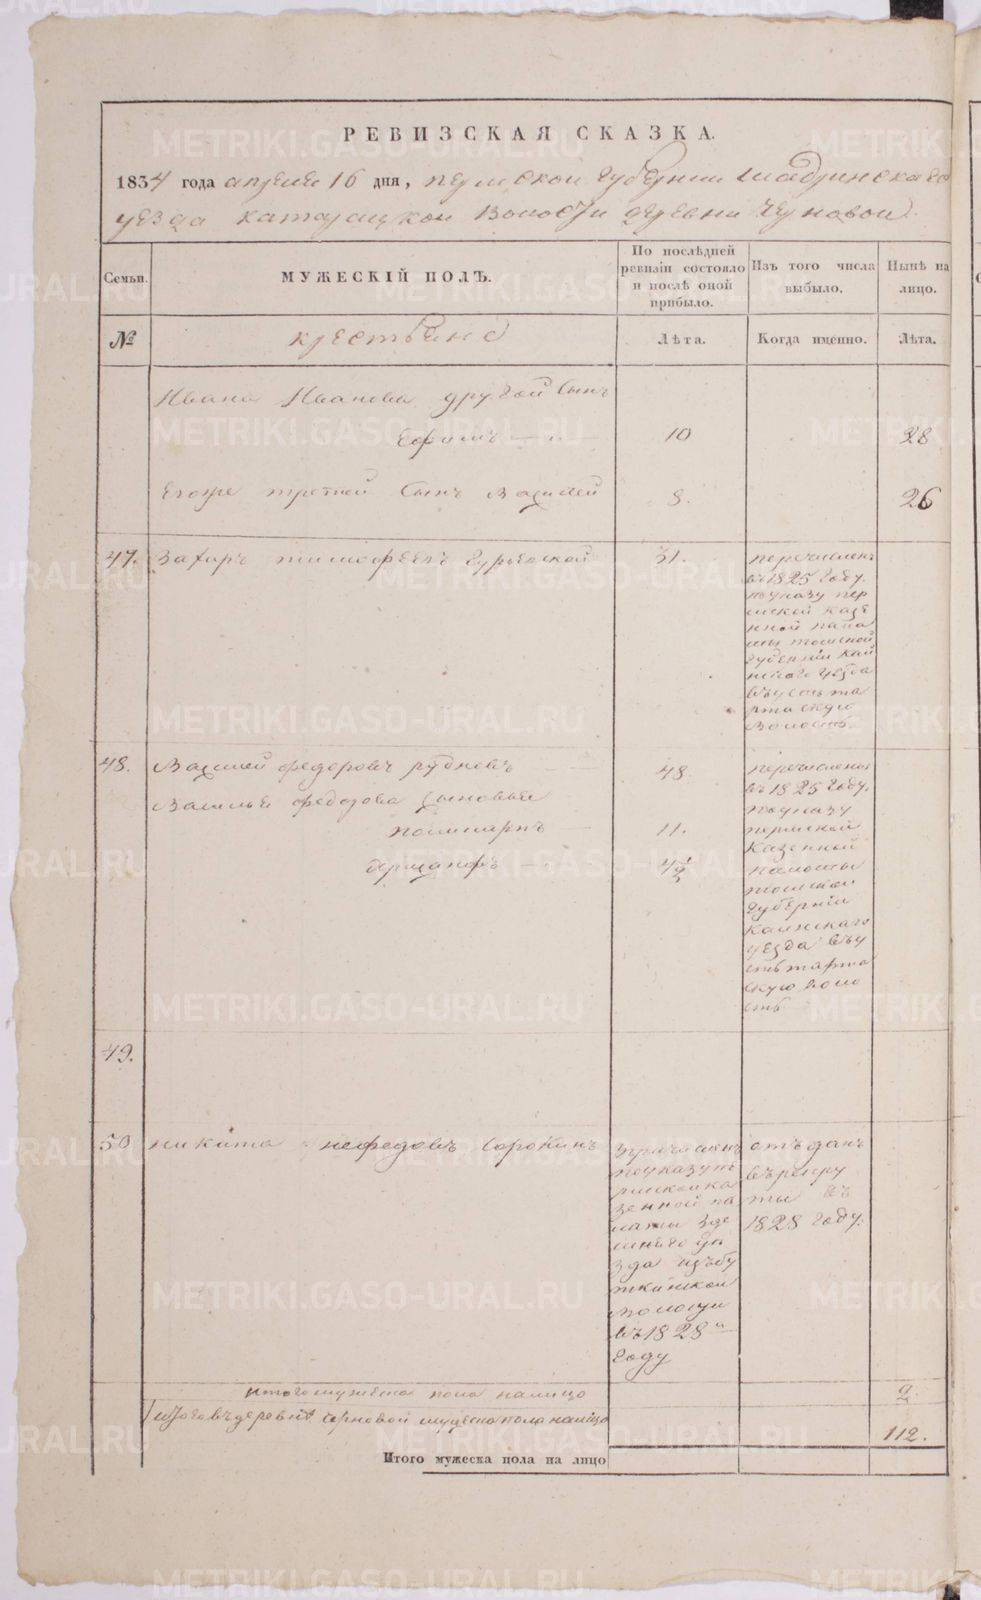 РЕВИЗСКАЯ СКАЗКА.
1834 года апреля 16 дня, пермской губернии Шадринскаго
уезда катайцкой Волости деревни Черновой.
Семьи.
МУЖЕСКІЙ ПОЛЪ.
По послѣдней ревизіи состояло и послѣ оной прибыло.
Изъ того числа выбыло.
Нынѣ на лицо.
№
крестьяне
Лѣта.
Когда именно.
Лѣта.
Ивана Иванова другой Сынъ
Ефимъ 10 28
Егоже третей Сынъ 8. 26
47. Захаръ тимофеевъ 31.
перечисленъ
въ 1825 Году.
поуказу пер
мской казе
нной пала
ты томской
Губерніи каи
нскаго уезда
въусть та
ртаскую
Волость.
48. Василей федоровъ рудновъ 48
Василья федорова Сыновья
поликарпъ 11.
4 1/2
перечислены
въ 1825 Году.
поуказу
пермской
Казенной
палаты
томской
Губерніи
Каинскаго
уезда въу
сть тарта
скую воло
сть
49.
50 никита нефедовъ Сорокинъ
причисленъ
поуказу пе
рмской ка
зенной па
латы зде
шняго уе
зда изъбу
ткинской
волости
въ 1828м
Году
отъданъ
въ рекру
ты въ
1828 Году.
итого мужеска пола налицо 2.
Итого въдеревне Черновой мужеска пола налицо 112.
Итого мужеска пола на лицо
METRIKI.GASO-URAL.RU